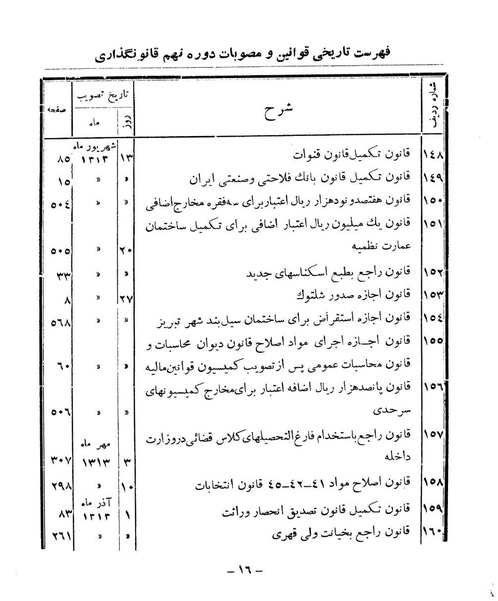 فهرست تاریخی قوانین و مصوبات دوره نهم قانونگذاری
شماره ردیف شرح تاریخ تصویب صفحه
روز ماه
شهریور ماه
۱۴۸ قانون تکمیل قانون قنوات ۱۳ ۱۳۱۳ ۸۵
۱۴۹ قانون تکمیل قانون بانک فلاحتی وصنعتی ایران » » ۱۵
۱۵۰ قانون هفتصدونودهزار ریال اعتباربرای سه فقره مخارج اضافی » » ۵۰۴
۱۵۱ قانون یك میلیون ریال اعتبار اضافی برای تکمیل ساختمان
عمارت نظمیه ۲۰ » ۵۰۵
۱۵۲ قانون راجع بطبع اسکناسهای جدید » » ۳۳
۱۵۳ قانون اجازه صدور شلتوك ۲۷ » ۸
۱۵۴ قانون اجازه استقراض برای ساختمان سیل بند شهر تبریز » » ۵۶۸
۱۵۵ قانون اجازه اجرای مواد اصلاح قانون دیوان محاسبات و
قانون محاسبات عمومی پس از تصویب کمیسیون قوانین مالیه » » ۶۰
۱۵۶ قانون پانصدهزار ریال اضافه اعتبار برای مخارج کمیسیونهای
سرحدی » » ۵۰۶
۱۵۷ قانون راجع باستخدام فارغ التحصیلهای کلاس قضائی دروزارت مهر ماه
داخله ۳ ۱۳۱۳ ۳۰۷
۱۵۸ قانون اصلاح مواد ۴۱-۴۲-۴۵ قانون انتخابات ۱۰ » ۲۹۸
آذر ماه
۱۵۹ قانون تکمیل قانون تصدیق انحصار وراثت ۱ ۱۳۱۳ ۸۳
۱۶۰ قانون راجع بخیانت ولی قهری » » ۲۶۱
- ۱۶ -